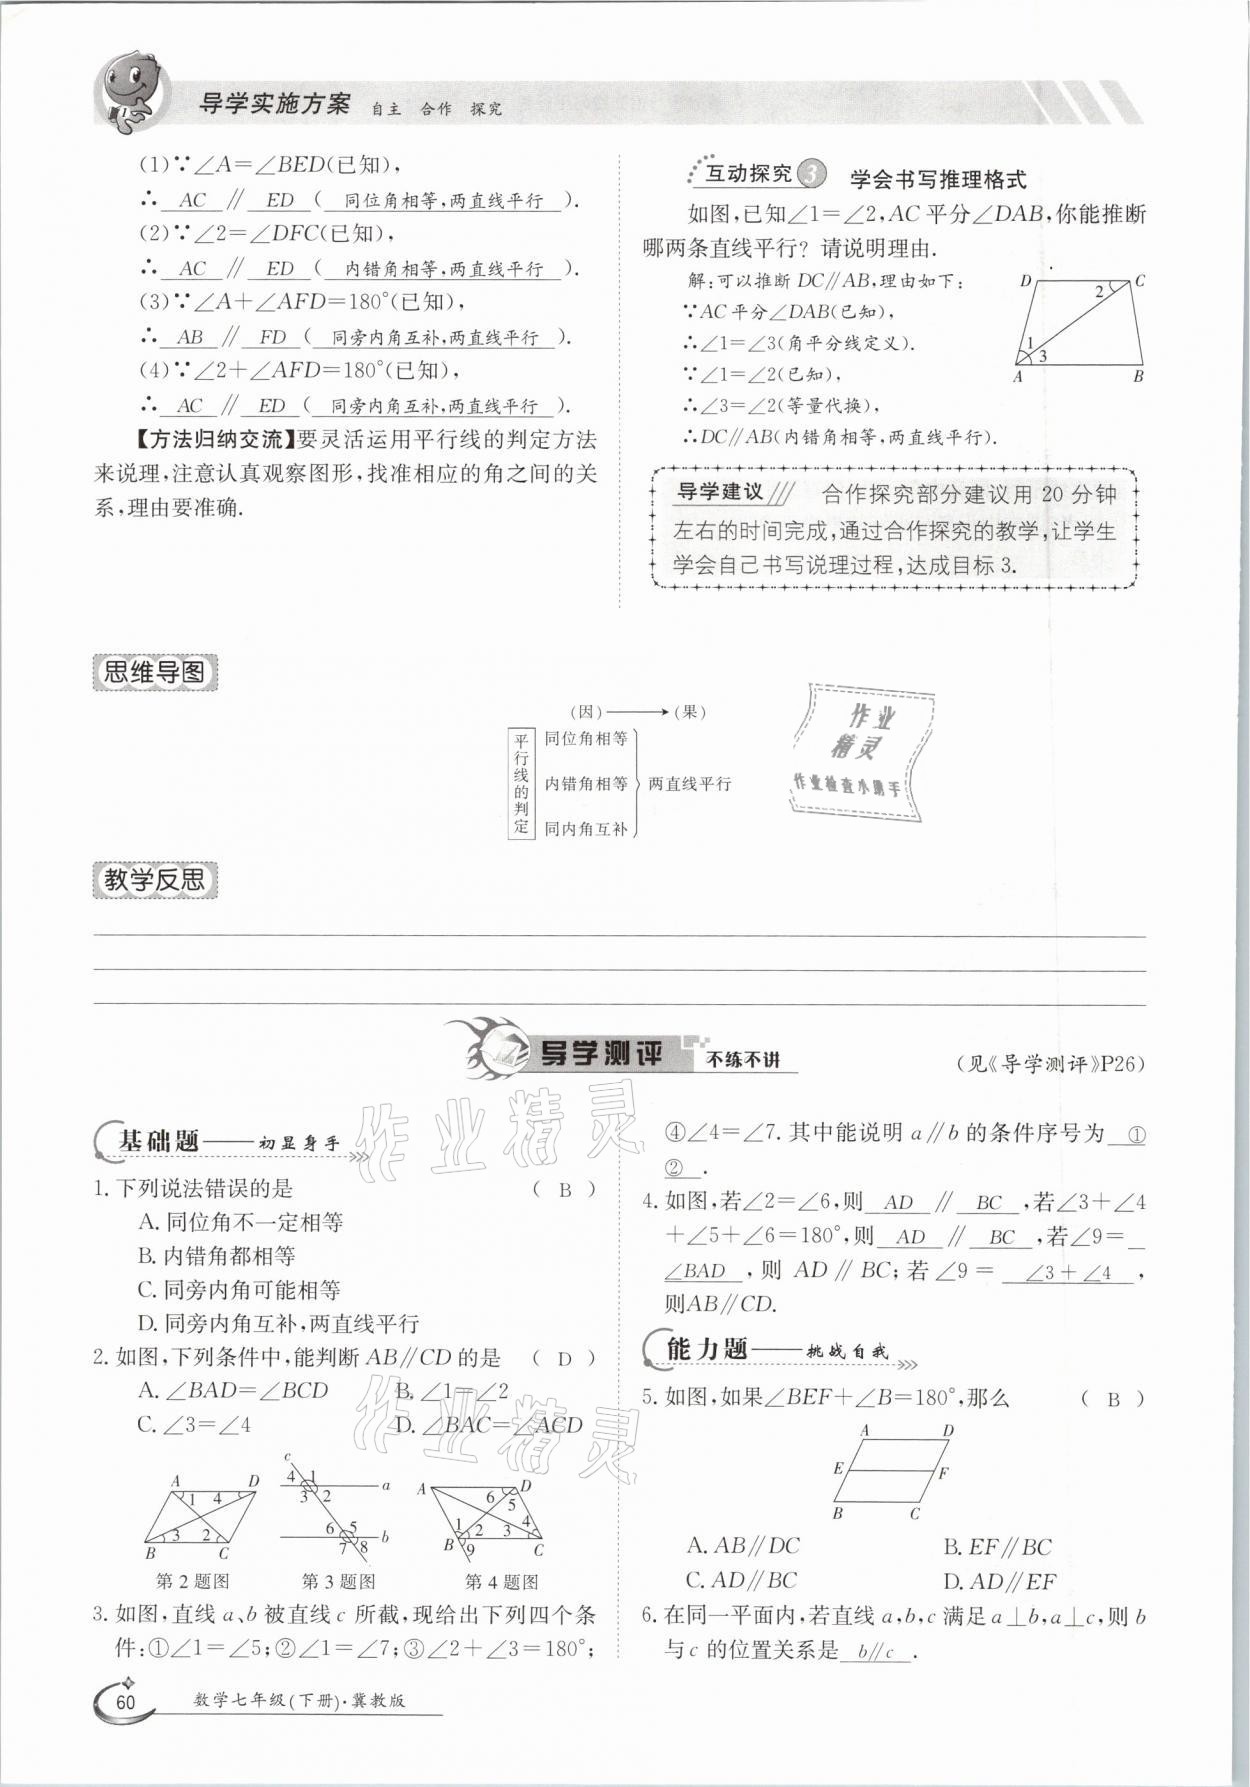 导学实施方案 自主 合作 探究
(1)∵∠A=∠BED(已知),
∴ AC ∥ ED ( 同位角相等,两直线平行 ).
(2)∵∠2=∠DFC(已知),
∴ AC ∥ ED ( 内错角相等,两直线平行 ).
(3)∵∠A+∠AFD=180°(已知),
∴ AB ∥ FD ( 同旁内角互补,两直线平行 ).
(4)∵∠2+∠AFD=180°(已知),
∴ AC ∥ ED ( 同旁内角互补,两直线平行 ).
【方法归纳交流】要灵活运用平行线的判定方法
来说理,注意认真观察图形,找准相应的角之间的关
系,理由要准确.
互动探究 3 学会书写推理格式
如图,已知∠1=∠2,AC平分∠DAB,你能推断
哪两条直线平行? 请说明理由.
解:可以推断DC∥AB,理由如下:
∵AC平分∠DAB(已知),
∴∠1=∠3(角平分线定义).
∵∠1=∠2(已知),
∴∠3=∠2(等量代换),
∴DC∥AB(内错角相等,两直线平行).
D C
2
1
3
A B
导学建议 合作探究部分建议用20分钟
左右的时间完成,通过合作探究的教学,让学生
学会自己书写说理过程,达成目标3.
思维导图
(因) (果)
平行线的判定
同位角相等
内错角相等
同内角互补
两直线平行
作业
精灵
作业检查小助手
教学反思
导学测评 不练不讲
(见《导学测评》P26)
基础题——初显身手
1.下列说法错误的是 ( B )
A.同位角不一定相等
B.内错角都相等
C.同旁内角可能相等
D.同旁内角互补,两直线平行
2.如图,下列条件中,能判断AB∥CD的是 ( D )
A.∠BAD=∠BCD B.∠1=∠2
C.∠3=∠4 D.∠BAC=∠ACD
A D
1 4
3 2
B C
第2题图
c
4 1
3 2
a
6 5
7 8
b
第3题图
A D
6
5
1 2 3 4
B 9 C
第4题图
3.如图,直线a、b被直线c所截,现给出下列四个条
件:①∠1=∠5;②∠1=∠7;③∠2+∠3=180°;
④∠4=∠7.其中能说明a∥b的条件序号为 ①
② .
4.如图,若∠2=∠6,则 AD ∥ BC ,若∠3+∠4
+∠5+∠6=180°,则 AD ∥ BC ,若∠9=
∠BAD ,则 AD∥BC;若∠9= ∠3+∠4 ,
则AB∥CD.
能力题——挑战自我
5.如图,如果∠BEF+∠B=180°,那么 ( B )
A D
E F
B C
A.AB∥DC B.EF∥BC
C.AD∥BC D.AD∥EF
6.在同一平面内,若直线a,b,c满足a⊥b,a⊥c,则b
与c的位置关系是 b∥c .
作业精灵
作业精灵
60 数学七年级(下册)·冀教版